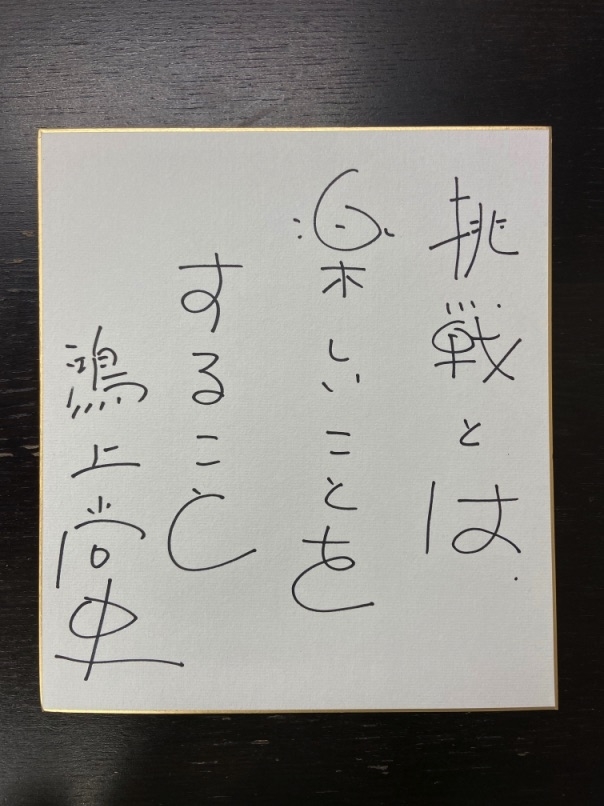 挑戦とは
楽しいことを
すること
鴻上尚史